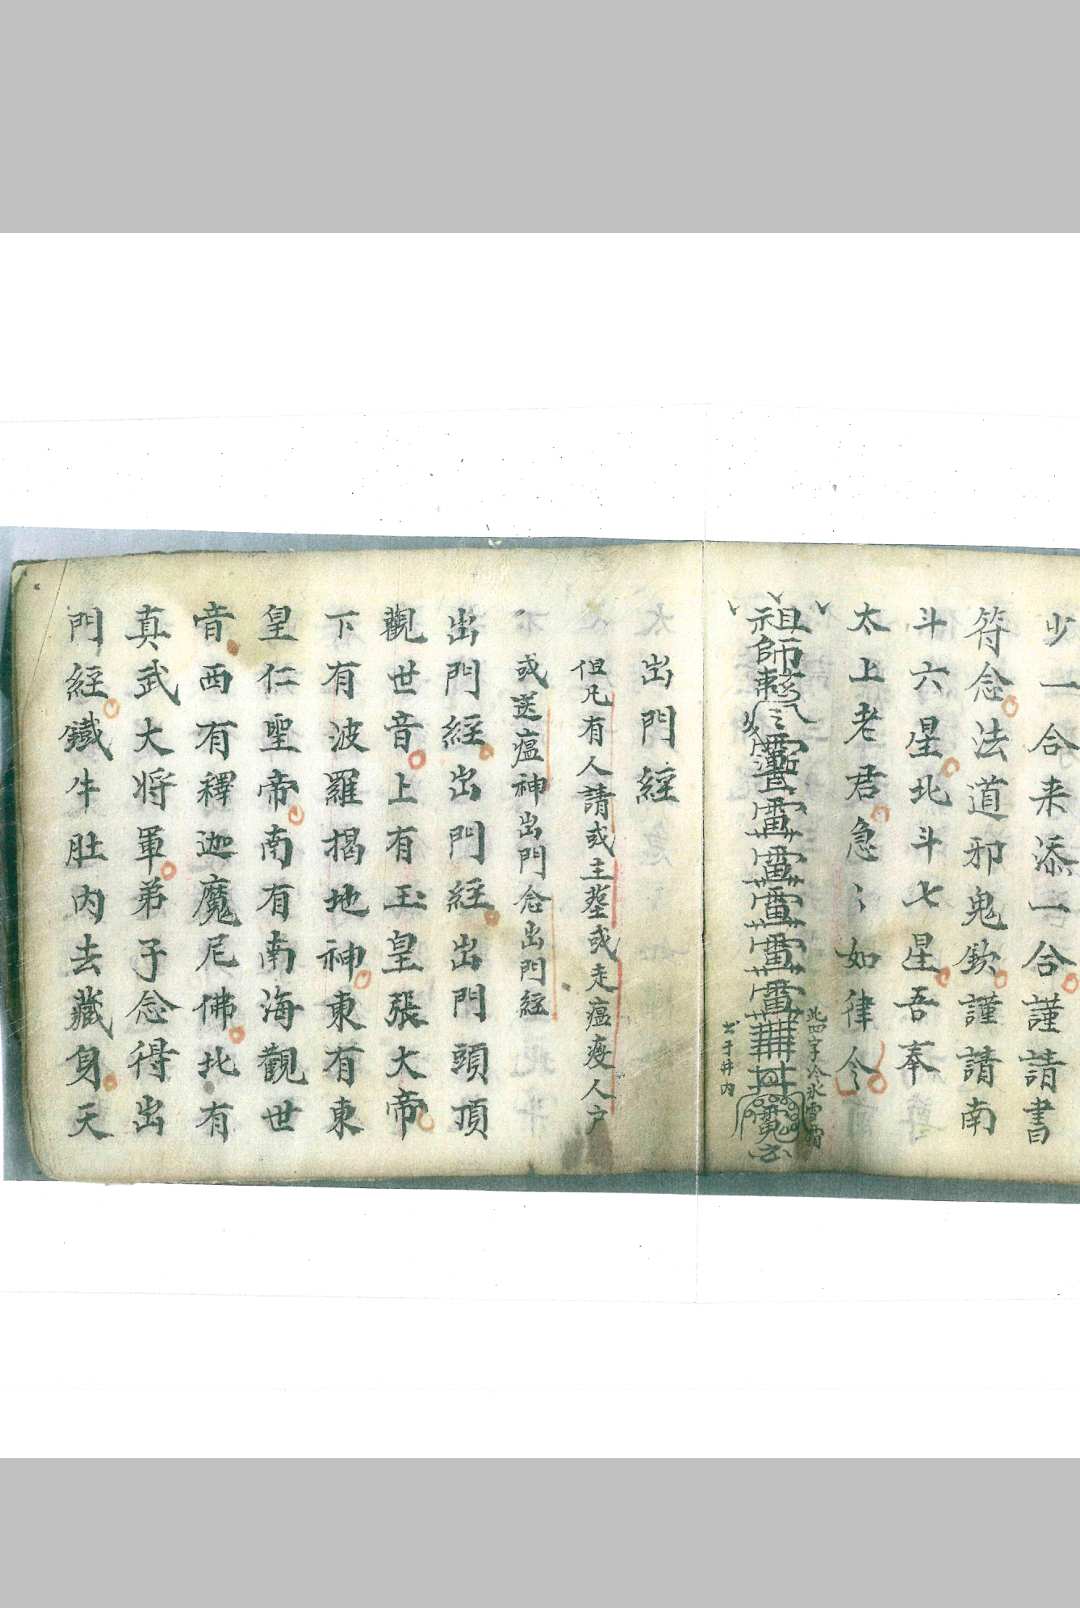 少一合来添一合謹請書
符念法道邪鬼欽謹請南
斗六星北斗七星吾奉
太上老君急〻如律令
祖師
此四字冷氷雪霜
書于井内
出門經
但凡有人請或主𦵏或走瘟疫人户
或送瘟神出門念出門經
出門經出門經出門頭頂
觀世音上有玉皇張大帝
下有波羅揭地神東有東
皇仁聖帝南有南海觀世
音西有釋迦魔尼佛北有
真武大将軍弟子念得出
門經鐵牛肚内去藏身天